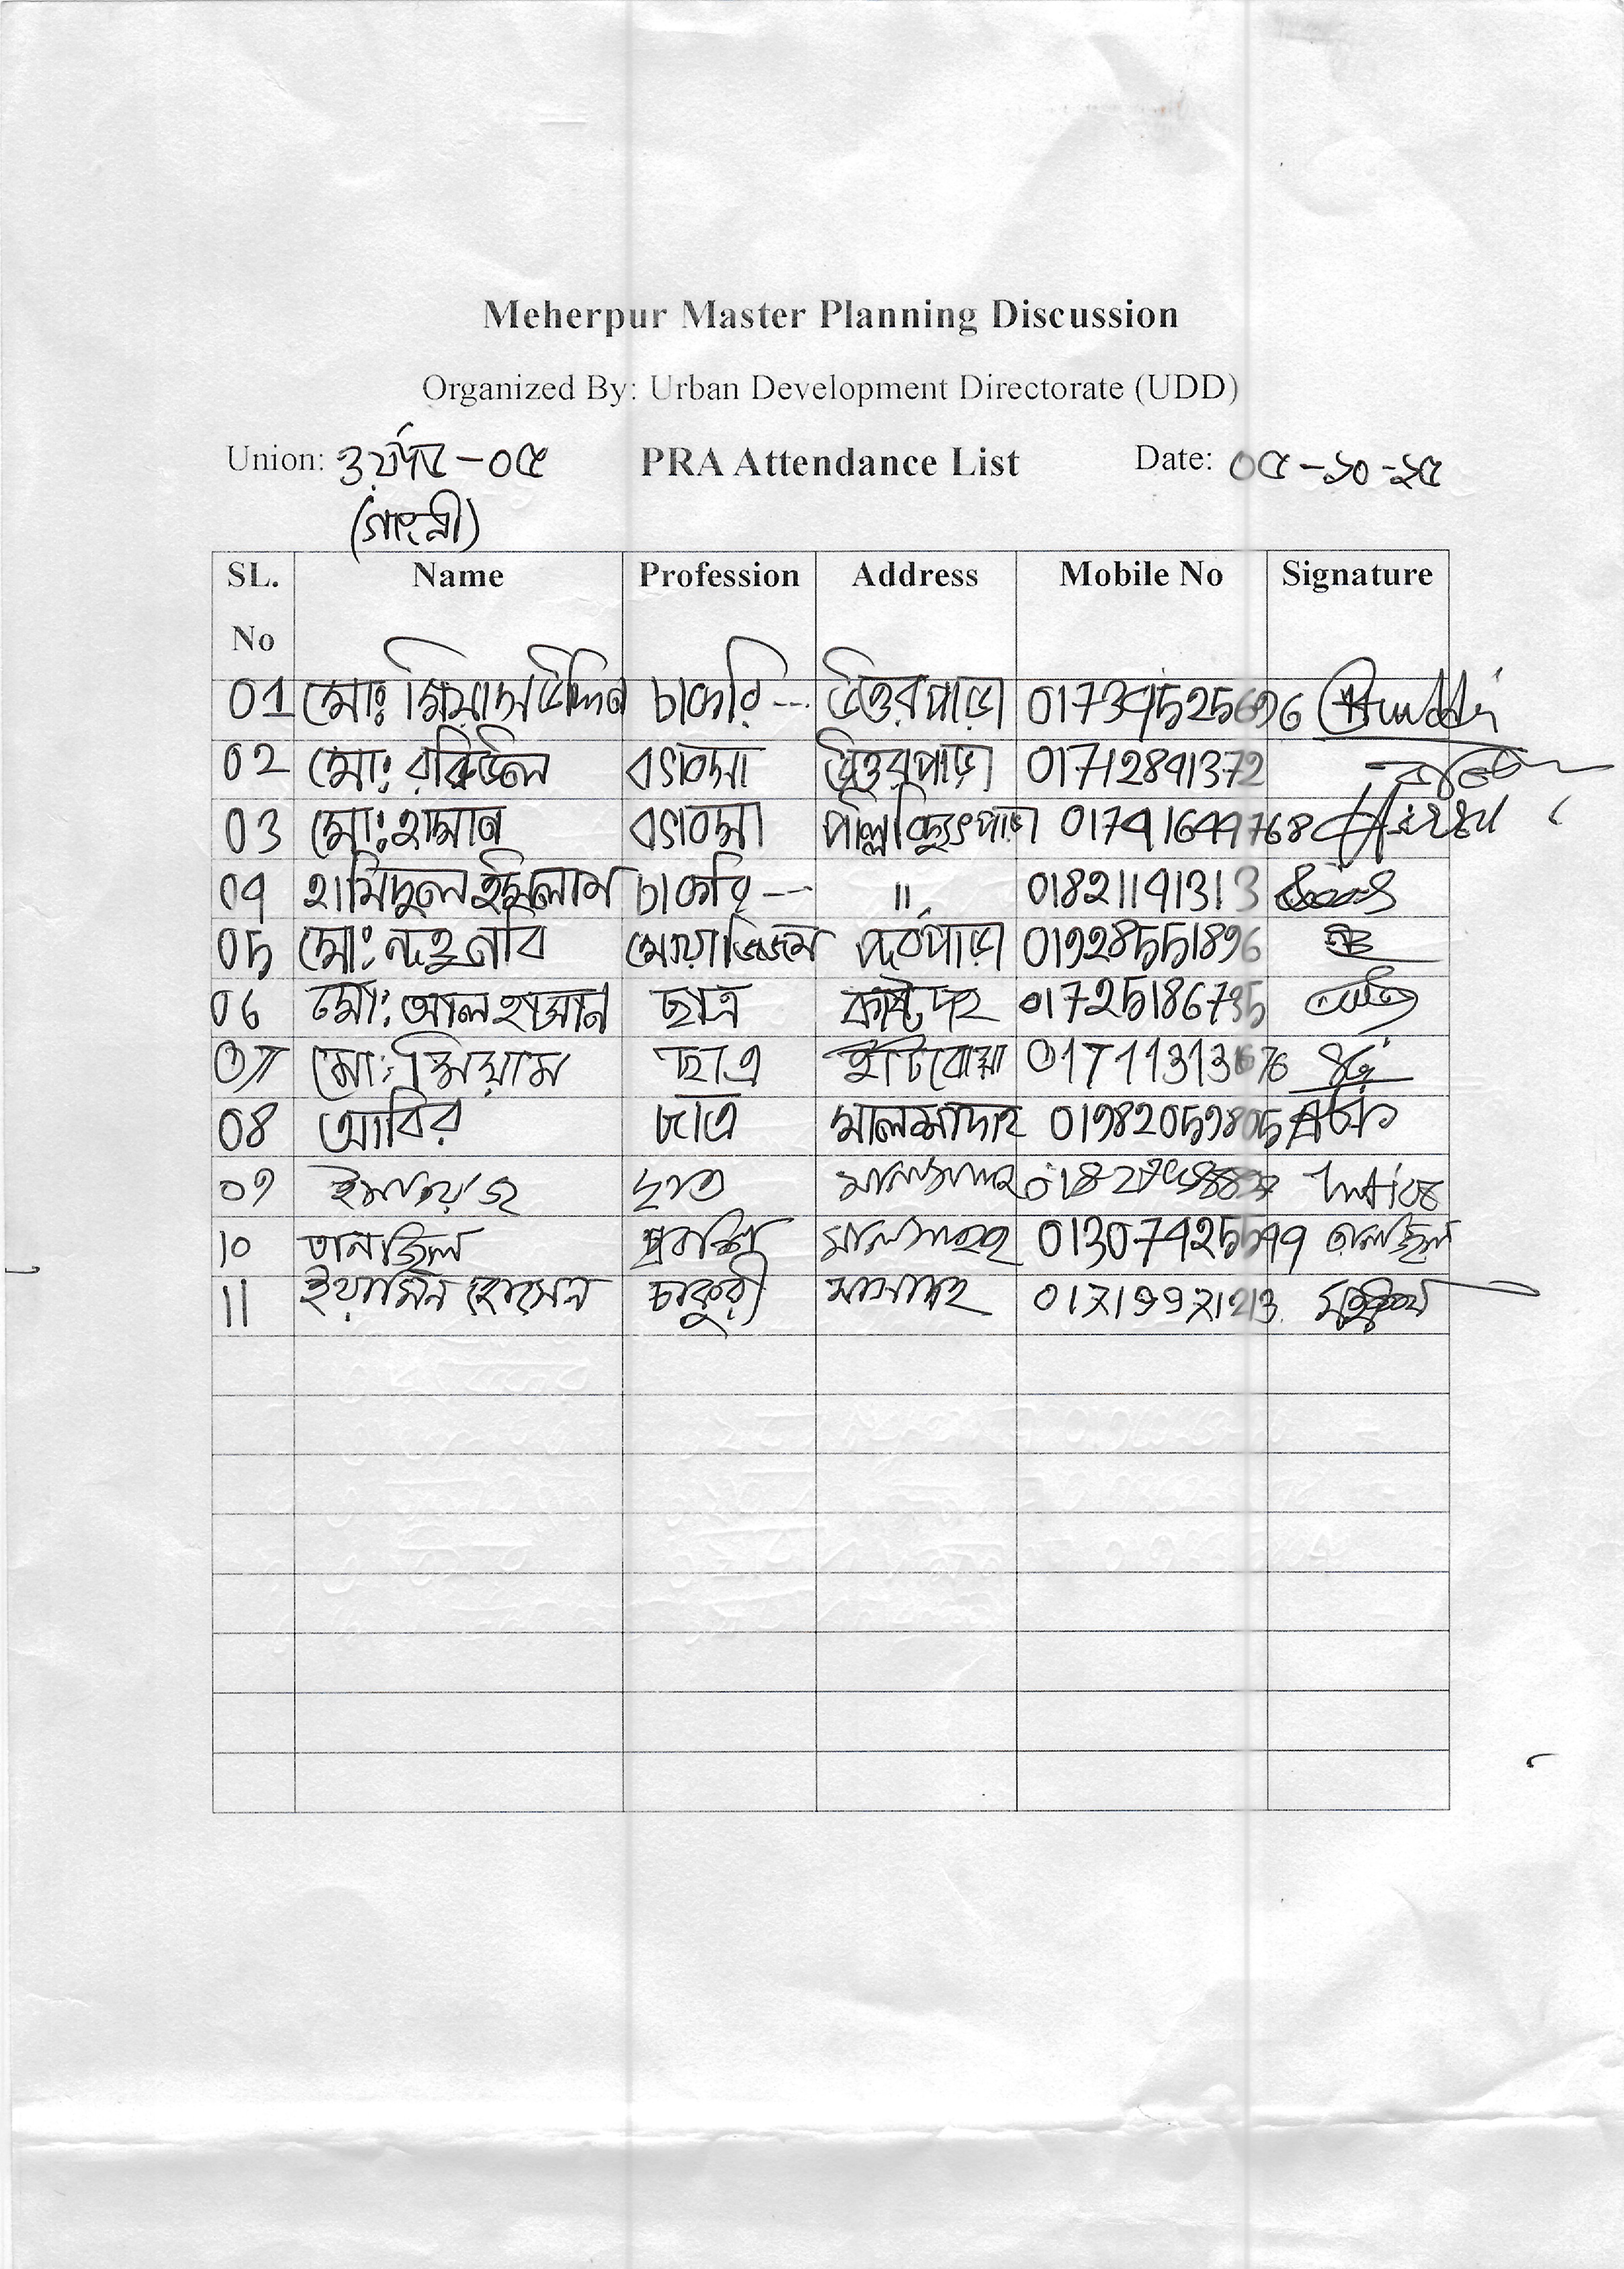 Meherpur Master Planning Discussion
Organized By: Urban Development Directorate (UDD)
Union: ওয়ার্ড - ০৫ PRA Attendance List Date: ০৫-১০-২৫
(গাংনী)
SL. No Name Profession Address Mobile No Signature
01 মোঃ গিয়াস উদ্দিন চাকরি --- উত্তরপাড়া
02 মোঃ রবিউল ব্যবসা উত্তরপাড়া 01712891372
03 মোঃ হাসান ব্যবসা 01741649768
04 হামিদুল ইসলাম চাকরি --- " 01821191313
05 মোঃ নবি মোয়াজ্জিম পূর্বপাড়া 01928551896
06 মোঃ আল হাসান ছাত্র কাষ্টদহ 01725186735
07 মোঃ সিয়াম ছাত্র 01711313676
08 আবির ছাত্র মালসাদাহ 01982059805
09 মালসাদহ
10 তানজিল প্রবাসী মালসাদহ 01307425599 তানজিল
11 ইয়ামিন হোসেন চাকুরী